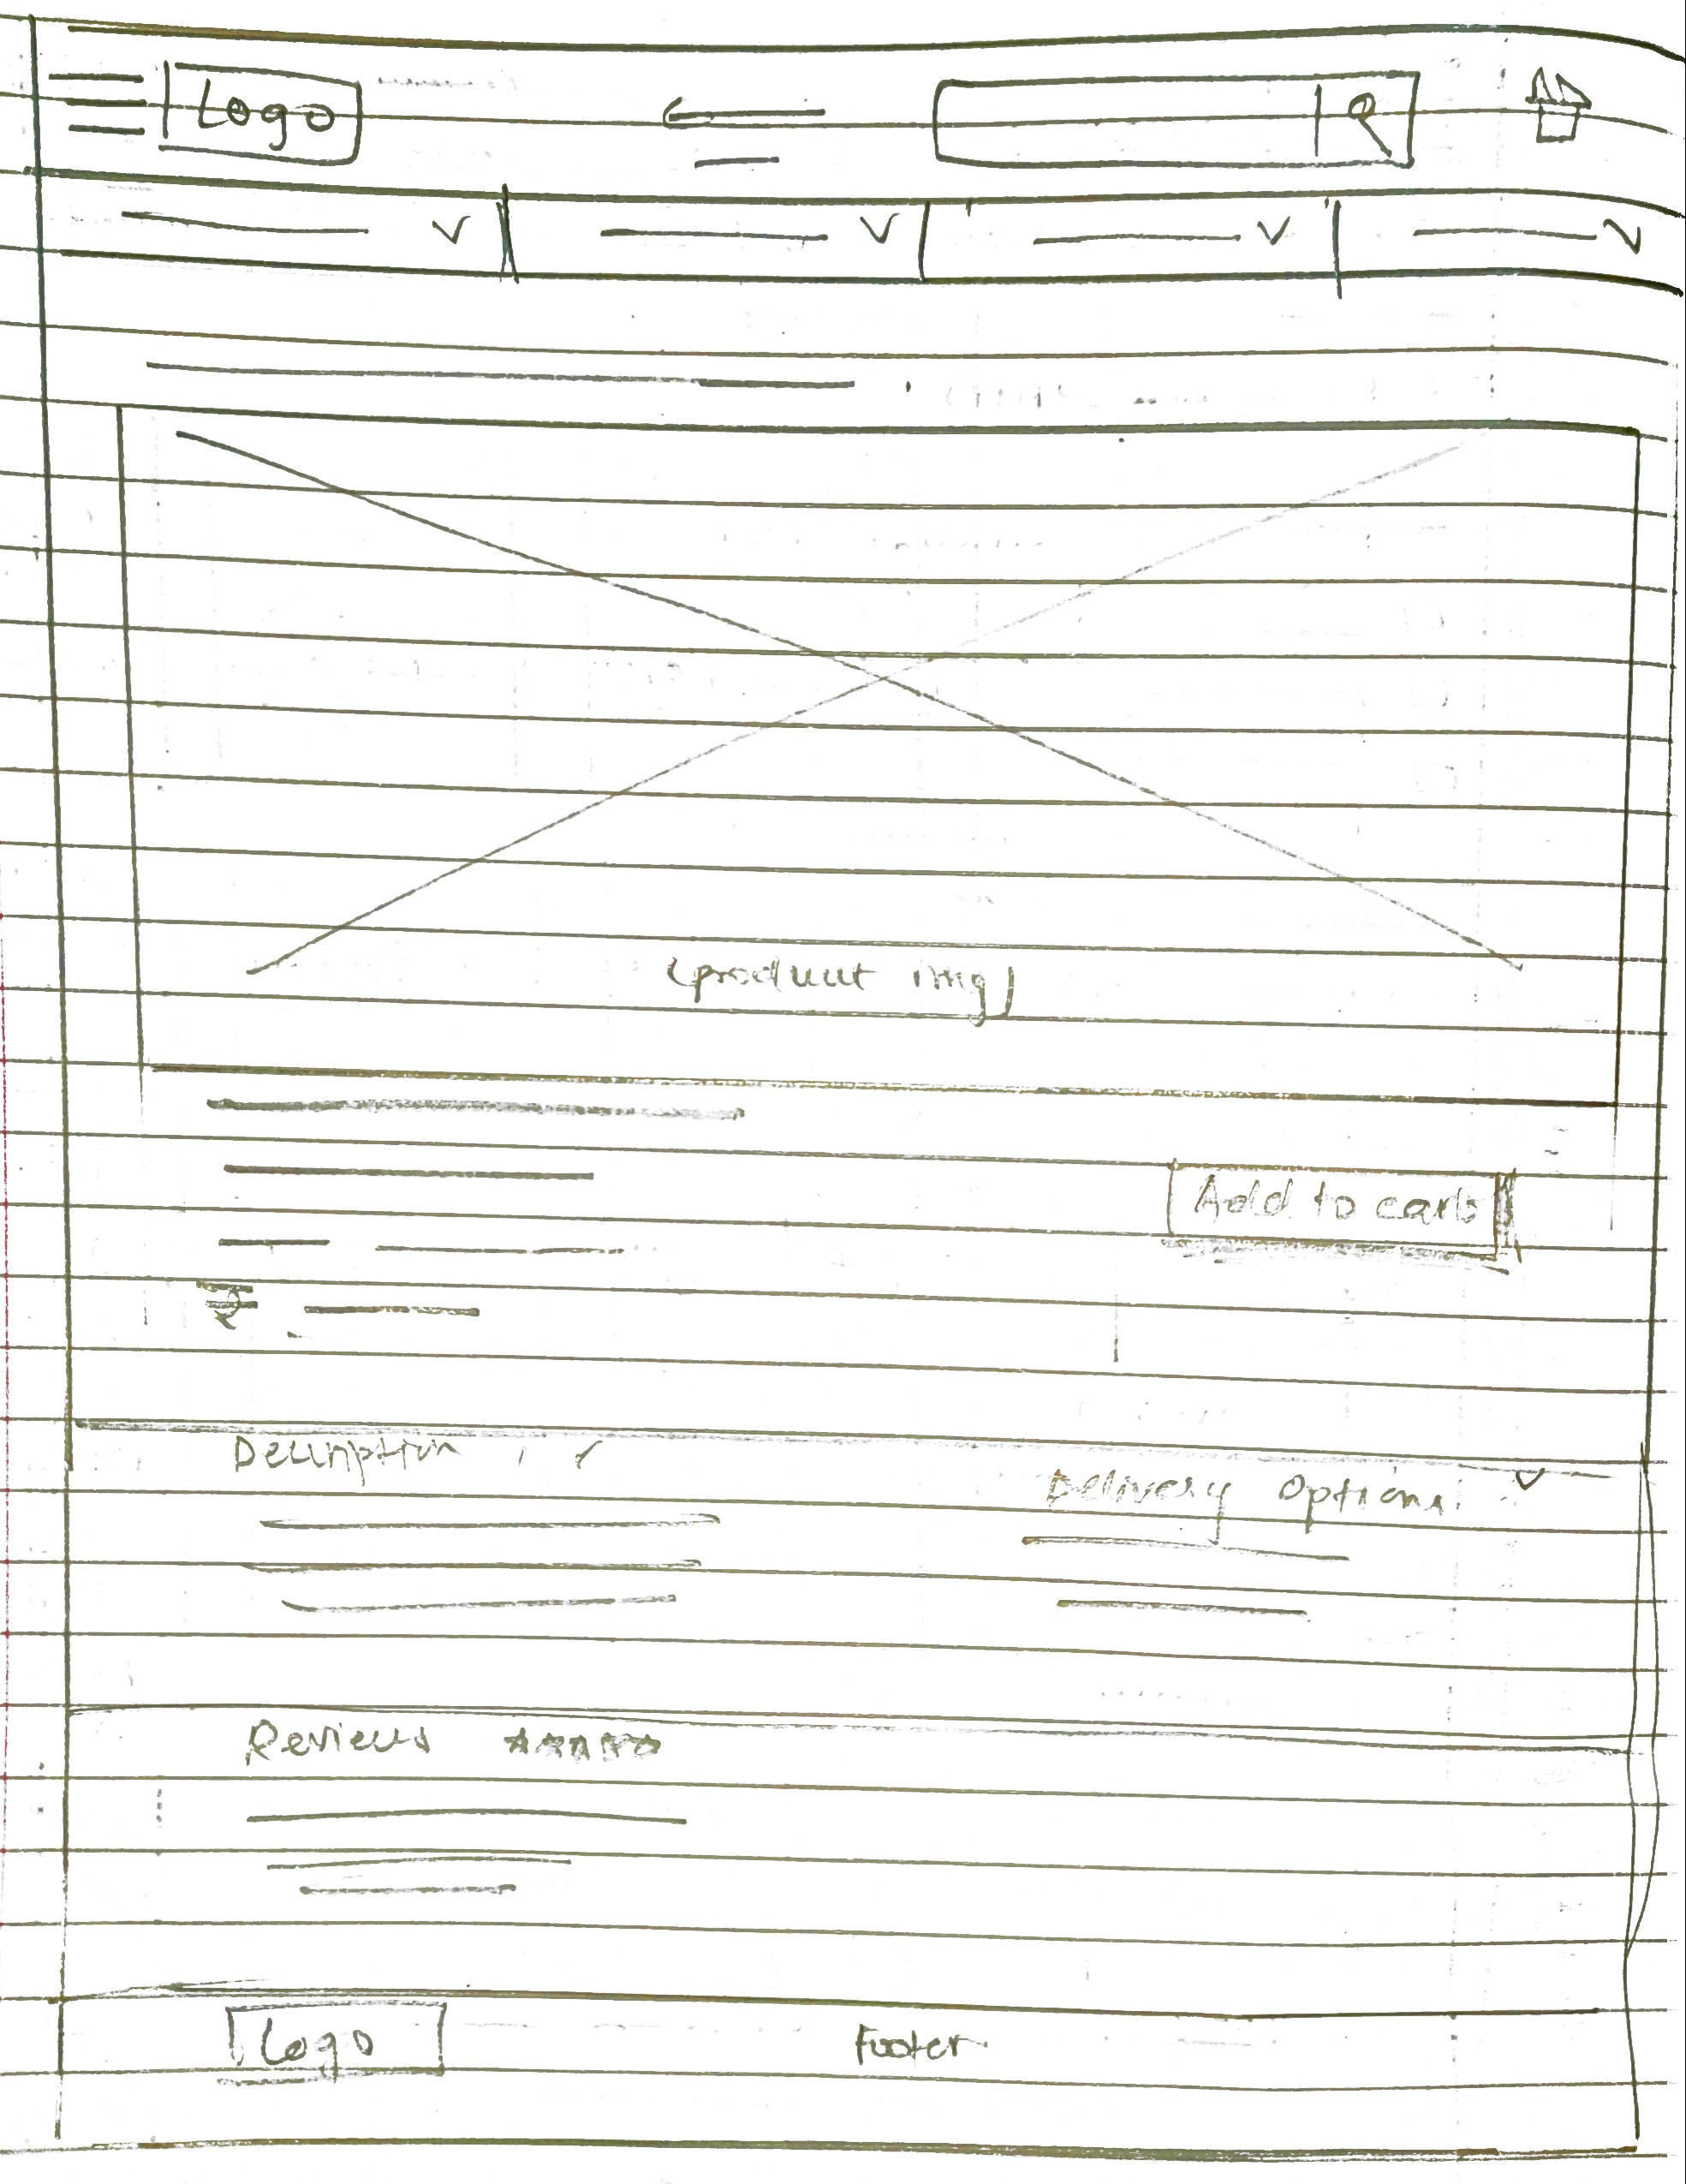 Logo
(product img)
Add to cart
₹
Description
Delivery Options
Reviews
Logo
Footer